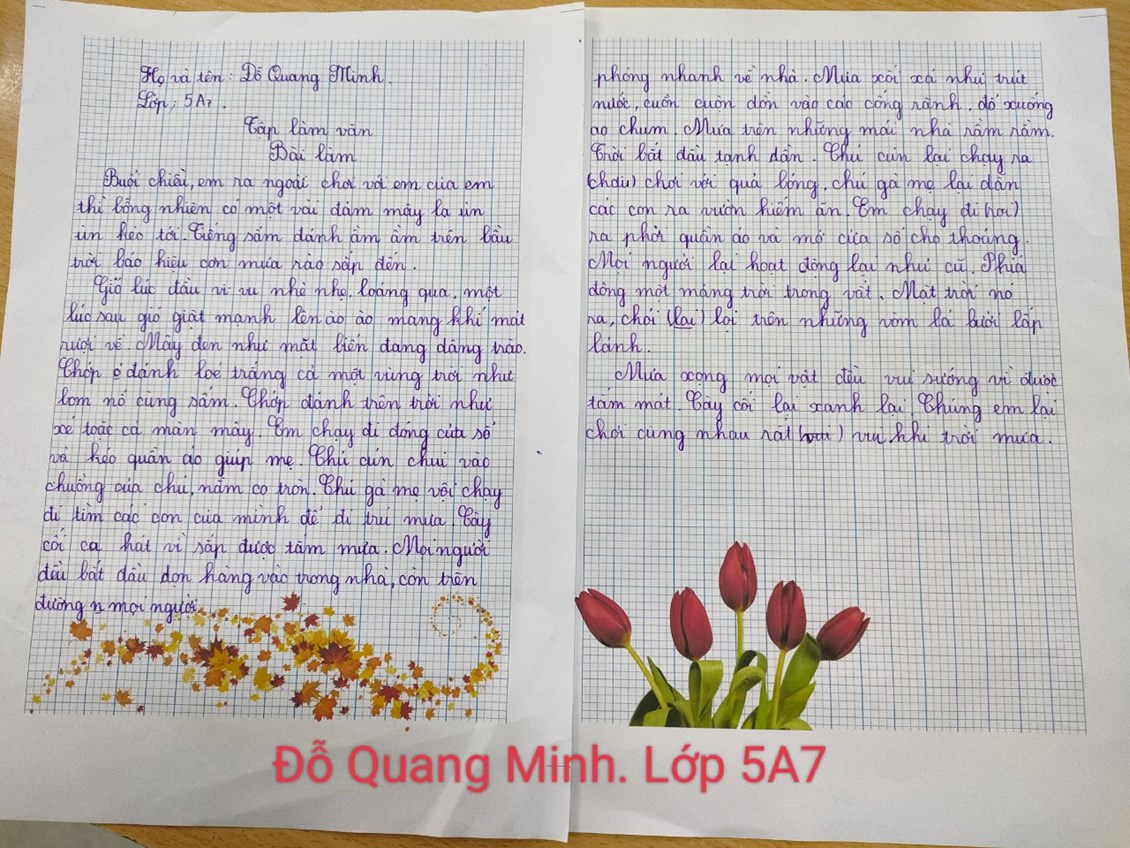 Họ và tên: Đỗ Quang Minh.
Lớp: 5A7.
Tập làm văn
Bài làm
Buổi chiều, em ra ngoài chơi với em của em
thì bỗng nhiên có một vài đám mây lạ ùn
ùn kéo tới. Tiếng sấm đánh ầm ầm trên bầu
trời báo hiệu cơn mưa rào sắp đến.
Gió lúc đầu vi vu nhè nhẹ, loáng qua, một
lúc sau gió giật mạnh lên ào ào mang khí mát
rượi về. Mây đen như mặt biển đang dâng trào.
Chớp đánh loe trắng cả một vùng trời như
bom nổ cùng sấm. Chớp đánh trên trời như
xé toạc cả màn mây. Em chạy đi đóng cửa sổ
và kéo quần áo giúp mẹ. Chú cún chui vào
chuồng của chú, nằm co tròn. Chú gà mẹ vội chạy
đi tìm các con của mình để đi trú mưa. Cây
cối ca hát vì sắp được tắm mưa. Mọi người
đều bắt đầu dọn hàng vào trong nhà, còn trên
đường n mọi người
phóng nhanh về nhà. Mưa xối xả như trút
nước, cuồn cuộn dồn vào các cống rãnh, đổ xuống
ao chum. Mưa trên những mái nhà rầm rầm.
Trời bắt đầu tạnh dần. Chú cún lại chạy ra
chơi với quả bóng, chú gà mẹ lại dẫn
các con ra vườn kiếm ăn. Em chạy đi
ra phơi quần áo và mở cửa sổ cho thoáng.
Mọi người lại hoạt động lại như cũ. Phía
đông một mảng trời trong vắt. Mặt trời nó
ra, chói (lại) lọi trên những vòm lá bưởi lấp
lánh.
Mưa xong mọi vật đều vui sướng vì được
tắm mát. Cây cối lại xanh lại. Chúng em lại
chơi cùng nhau rất vui khi trời mưa.
Đỗ Quang Minh. Lớp 5A7